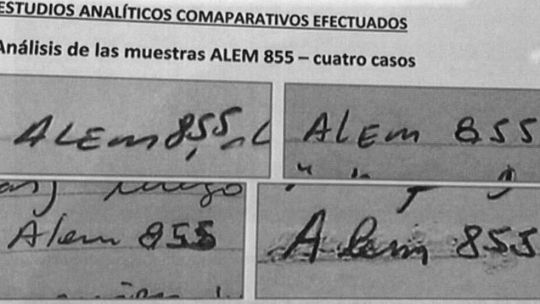 ESTUDIOS ANALÍTICOS COMAPARATIVOS EFECTUADOS
Análisis de las muestras ALEM 855 – cuatro casos
ALEm 855
ALEm 855
Alem 855
Alem 855